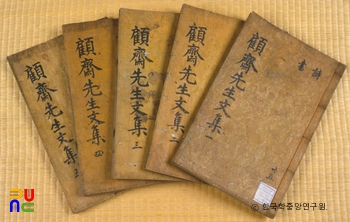 顧齋先生文集
顧齋先生文集 四
顧齋先生文集 三
顧齋先生文集 二
顧齋先生文集
© 한국학중앙연구원